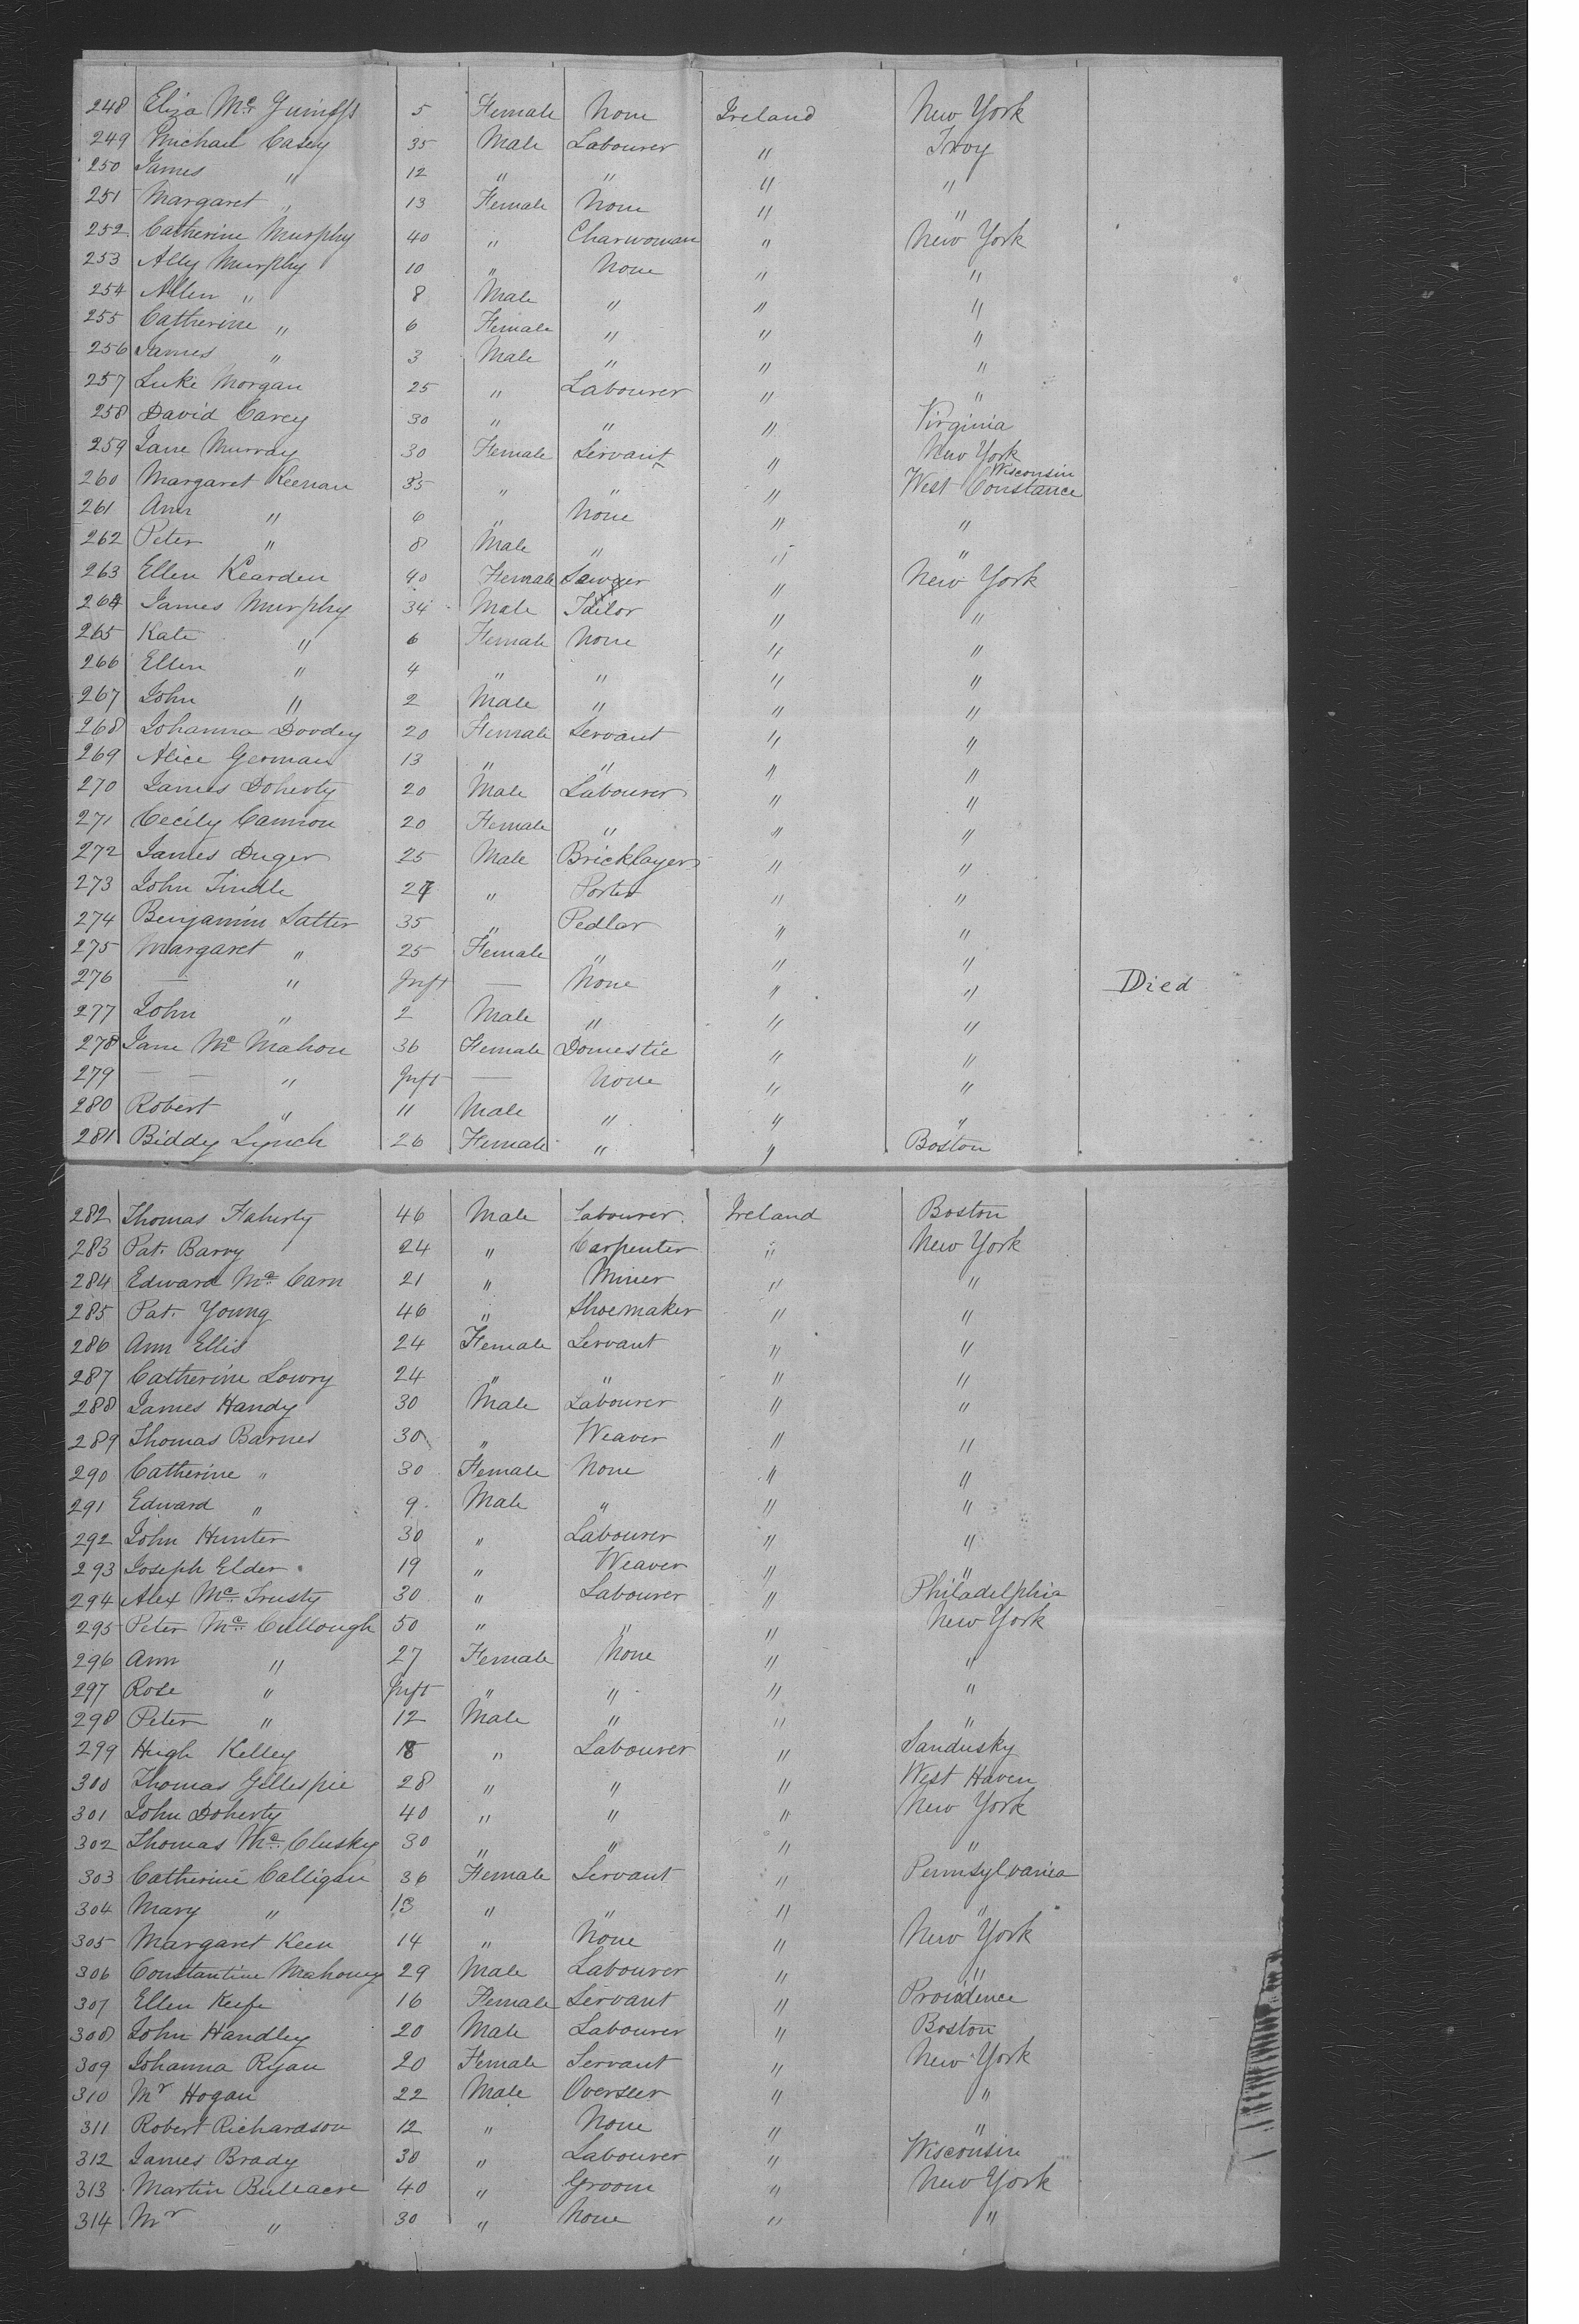 248 Eliza Mc Guiness 5 Female None Ireland New York
249 Michael Casey 35 Male Labourer " Troy
250 James " 12 " " " "
251 Margaret " 13 Female None " "
252 Catherine Murphy 40 " Charwoman " New York
253 Ally Murphy 10 " None " "
254 Allen " 8 Male " " "
255 Catherine " 6 Female " " "
256 James " 3 Male " " "
257 Luke Morgan 25 " Labourer " "
258 David Carey 30 " " " Virginia
259 Jane Murray 30 Female Servant " New York
260 Margaret Keenan 35 " " " West Constance Wisconsin
261 Ann " 6 " None " "
262 Peter " 8 Male " " "
263 Ellen Kearden 40 Female " New York
264 James Murphy 34 Male " "
265 Kate " 6 Female None " "
266 Ellen " 4 " " " "
267 John " 2 Male " " "
268 Johanna Doodey 20 Female Servant " "
269 Alice German 13 " " " "
270 James Doherty 20 Male Labourer " "
271 Cecily Cannon 20 Female " " "
272 James Duger 25 Male Bricklayer " "
273 John Tindle " Porter " "
274 Benjamin Satter 35 " Pedlar " "
275 Margaret " 25 Female " " "
276 — " Inft — None " " Died
277 John " 2 Male " " "
278 Jane Mc Mahon 36 Female Domestic " "
279 — — " Inft — None " "
280 Robert " 11 Male " " "
281 Biddy Lynch 26 Female " " Boston
282 Thomas Flaherty 46 Male Labourer Ireland Boston
283 Pat. Barry 24 " Carpenter " New York
284 Edward Mc Carn 21 " Miner " "
285 Pat. Young 46 " Shoemaker " "
286 Ann Ellis 24 Female Servant " "
287 Catherine Lowry 24 " " " "
288 James Handy 30 Male Labourer " "
289 Thomas Barnes 30 " Weaver " "
290 Catherine " 30 Female None " "
291 Edward " 9 Male " " "
292 John Hunter 30 " Labourer " "
293 Joseph Elder 19 " Weaver " "
294 Alex Mc Trusty 30 " Labourer " Philadelphia
295 Peter Mc Cullough 50 " " " New York
296 Ann " 27 Female None " "
297 Rose " Inft " " " "
298 Peter " 12 Male " " "
299 Hugh Kelley " Labourer " Sandusky
300 Thomas Gillespie 28 " " " West Haven
301 John Doherty 40 " " " New York
302 Thomas Mc Clusky 30 " " " "
303 Catherine Calligan 36 Female Servant " Pennsylvania
304 Mary " 13 " " " "
305 Margaret Keen 14 " None " New York
306 Constantine Mahoney 29 Male Labourer " "
307 Ellen Keefe 16 Female Servant " Providence
308 John Handley 20 Male Labourer " Boston
309 Johanna Ryan 20 Female Servant " New York
310 Mr Hogan 22 Male Overseer " "
311 Robert Richardson 12 " None " "
312 James Brady 30 " Labourer " Wisconsin
313 Martin Buleacre 40 " Groom " New York
314 Mr " 30 " None " "